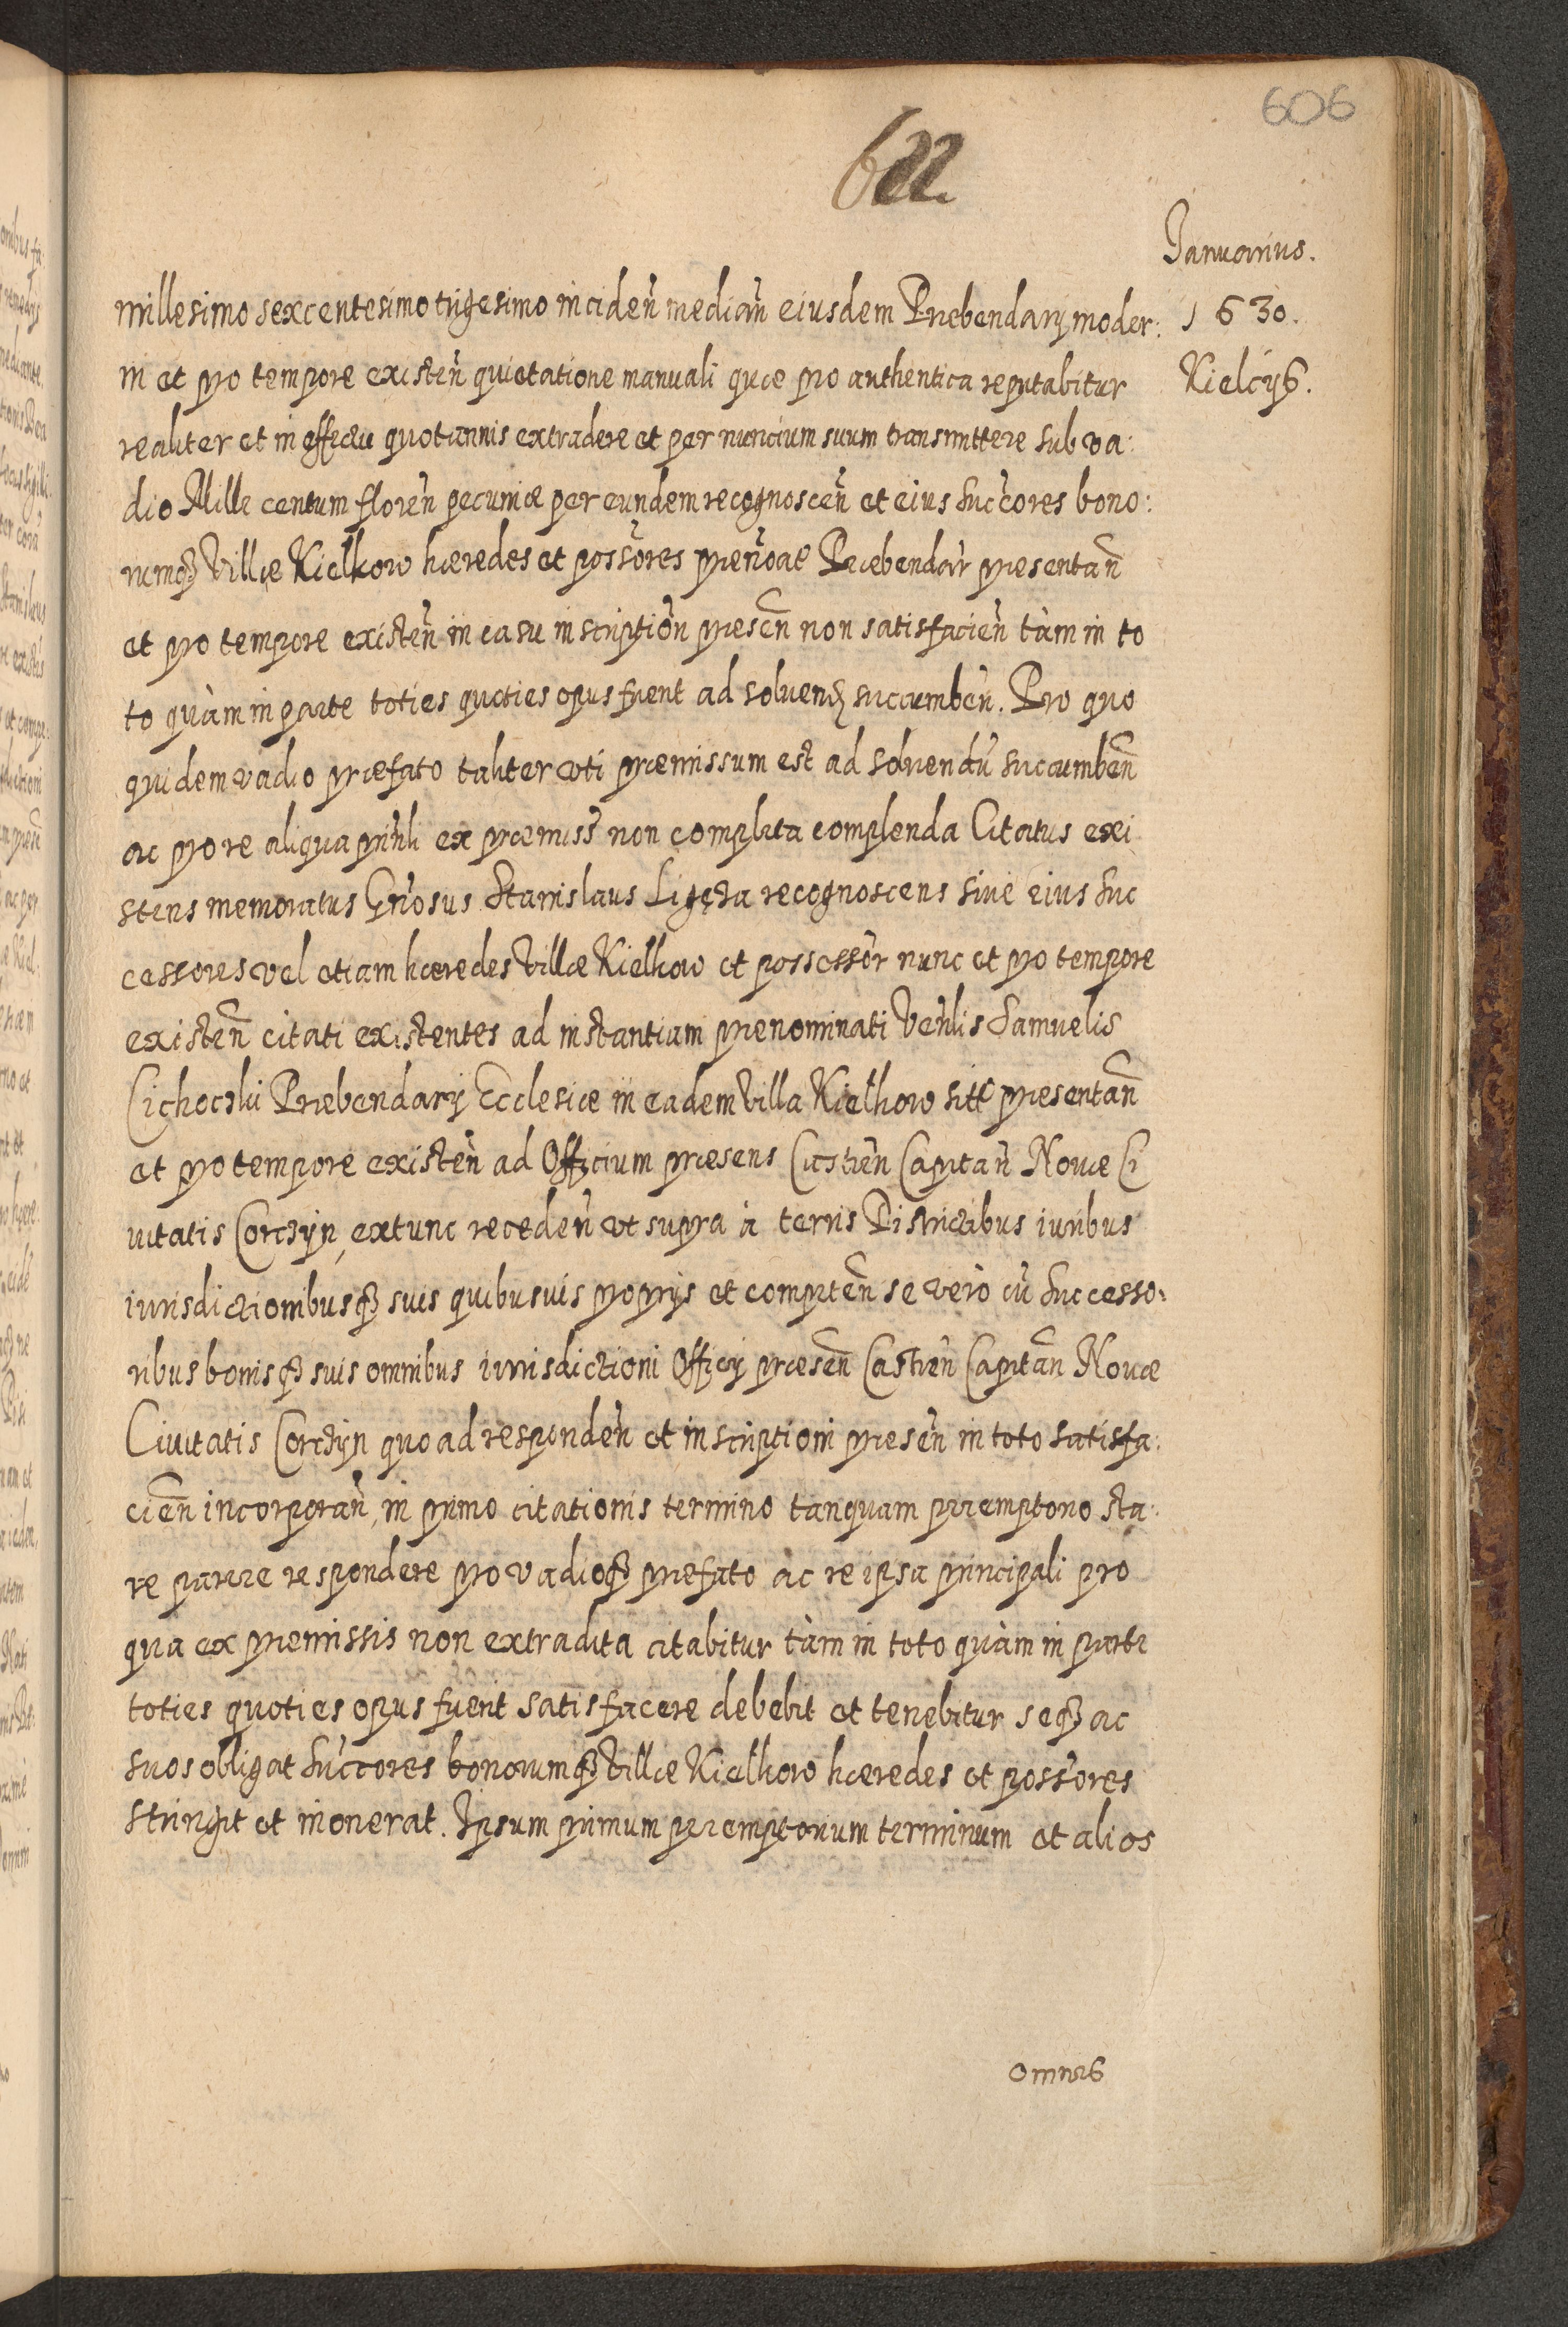 606
622.
Januarius.
millesimo sexcentesimo trigesimo inciden̄ median̄ eiusdem Præbendarij moder:
1630.
ni et pro tempore existen̄ quietatione manuali quæ pro authentica reputabitur
Kielcijs.
realiter et in effectu quotannis extradere et per nuncium suum transmittere sub va:
dio Mille centum floren̄ pecuniæ per eundem recognoscen̄ et eius Suc̄cores bono:
rumqꝫ Villæ Kielkow hæredes et poss̄ores prænoat Præbendar̄ præsentan̄
et pro tempore existen̄ in casu inscription̄ præsen̄ non satisfacien̄ tàm in to
to quàm in parte toties quoties opus fuerit ad soluend succumben̄. Pro quo
quidem vadio præfato taliter uti præmissum est ad soluendū succumben̄
ac pro re aliqua prin̄li ex præmiss̄ non completa complenda Citatus exi
stens memoratus Gn̄osus Stanislaus Ligęza recognoscens siue eius Suc
cessores vel etiam hæredes Villæ Kielkow et possessor̄ nunc et pro tempore
existen̄ citati existentes ad instantiam prænominati Ven̄lis Samuelis
Cichocski Præbendarij Ecclesiæ in eadem Villa Kielkow sitt præsentan̄
et pro tempore existen̄ ad Officium præsens Castren̄ Capitan̄ Nouæ Ci
uitatis Corczÿn, extunc receden̄ ut supra à terris Districtibus iuribus
iurisdictionibusqꝫ suis quibusuis proprijs et competen̄ se verò cū Successo:
ribus bonisqꝫ suis omnibus iurisdictioni Officij præsen̄ Castren̄ Capitan̄ Nouæ
Ciuitatis Corczÿn quoad responden̄ et inscriptioni præsen̄ in toto satisfa:
cien̄ incorporan̄, in primo citationis termino tanquam peremptorio sta:
re parere respondere pro vadioqꝫ præfato ac re ipsa principali pro
qua ex præmissis non extradita citabitur tàm in toto quàm in parte
toties quoties opus fuerit satisfacere debebit et tenebitur seqꝫ ac
suos obligat Suc̄cores bonorumqꝫ Villæ Kielkow hæredes et poss̄ores
stringit et inonerat. Ipsum primum peremptorium terminum et alios
omnes